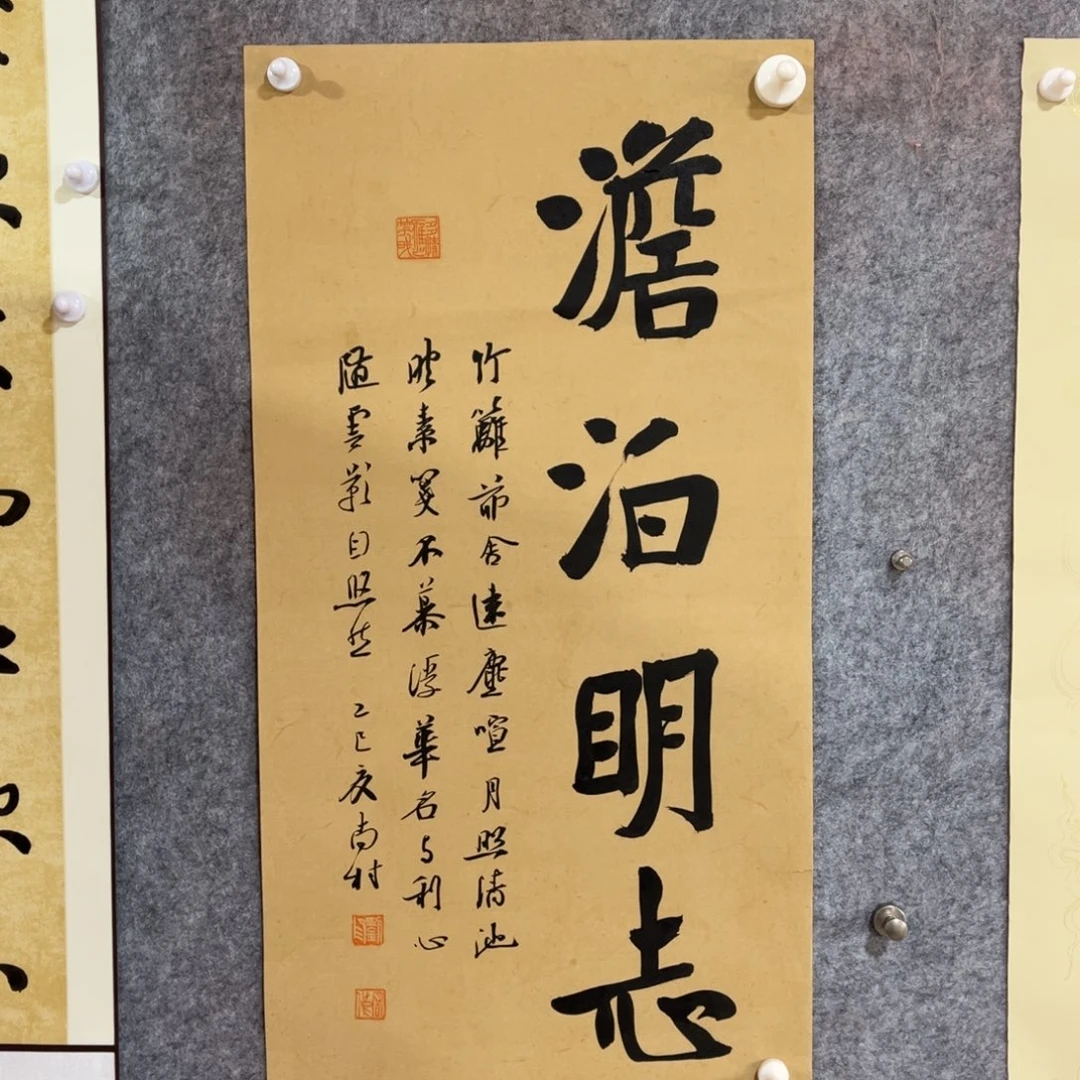 澹泊明志
竹籬茆舍遠塵喧月照清池
映素箋不慕浮華名与利心
隨雲影自照然 乙巳夏尚村